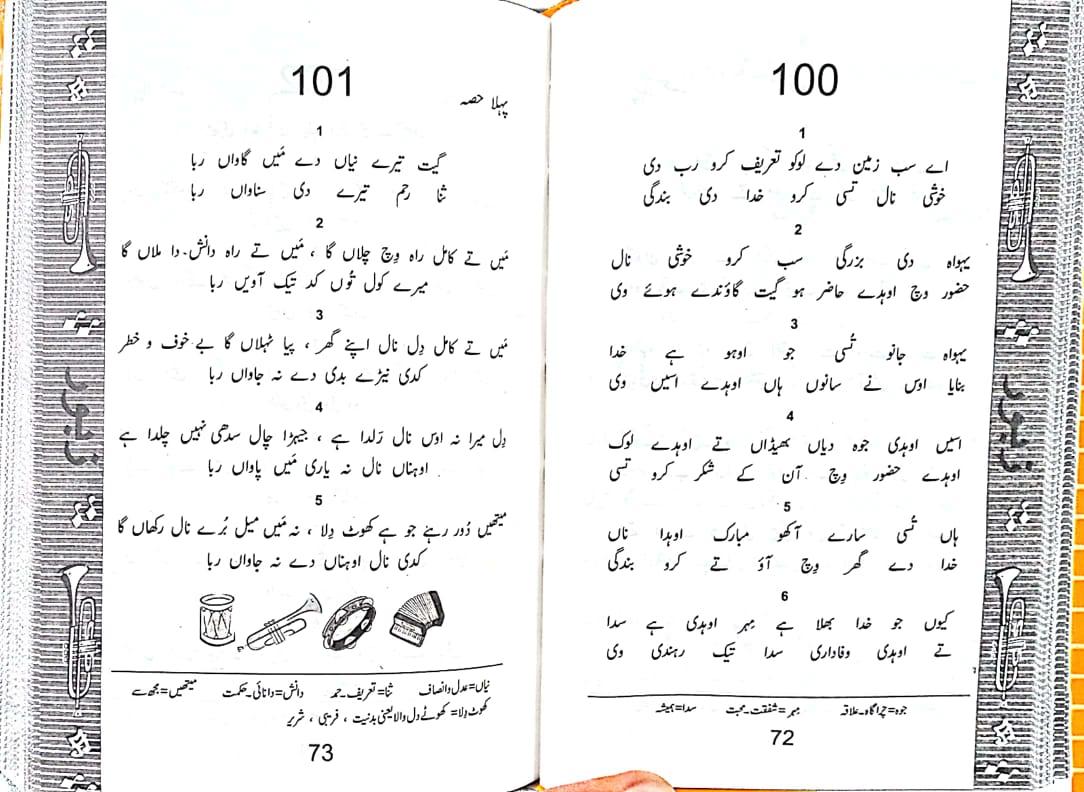 100
1
اے سب زمین دے لوکو تعریف کرو رب دی
خوشی نال تسی کرو خدا دی بندگی
2
یہواہ دی بزرگی سب کرو خوشی نال
حضور وِچ اوہدے حاضر ہو گیت گاؤندے ہوئے وی
3
یہواہ جانو تُسی جو اوہو ہے خدا
بنایا اوس نے سانوں ہاں اوہدے اسیں وی
4
اسیں اوہدی جوہ دیاں بھیڈاں تے اوہدے لوک
اوہدے حضور وِچ آن کے شکر کرو تسی
5
ہاں تُسی سارے آکھو مبارک اوہدا ناں
خدا دے گھر وِچ آؤ تے کرو بندگی
6
کیوں جو خدا بھلا ہے مِہر اوہدی ہے سدا
تے اوہدی وفاداری سدا تیک رہندی وی
جوہ=چراگاہ۔علاقہ مِہر=شفقت۔محبت سدا=ہمیشہ
72
زبور
101
پہلا حصہ
1
گیت تیرے نیاں دے مَیں گاواں ربا
ثنا رحم تیرے دی سناواں ربا
2
مَیں تے کامل راہ وِچ چلاں گا ، مَیں تے راہ دانش۔دا ملاں گا
میرے کول تُوں کد تیک آویں ربا
3
مَیں تے کامل دِل نال اپنے گھر ، پیا ٹہلاں گا بے خوف و خطر
کدی نیڑے بدی دے نہ جاواں ربا
4
دِل میرا نہ اوس نال رَلدا ہے ، جیہڑا چال سدھی نہیں چلدا ہے
اوہناں نال نہ یاری مَیں پاواں ربا
5
میتھیں دُور رہنے جو ہے کھوٹ دِلا ، نہ مَیں میل بُرے نال رکھاں گا
کدی نال اوہناں دے نہ جاواں ربا
نیاں=عدل وانصاف ثنا=تعریف۔حمد دانش=دانائی۔حکمت میتھیں=مجھ سے
کھوٹ دِلا=کھوٹے دل والا یعنی بدنیت ، فریبی ، شریر
73
زبور